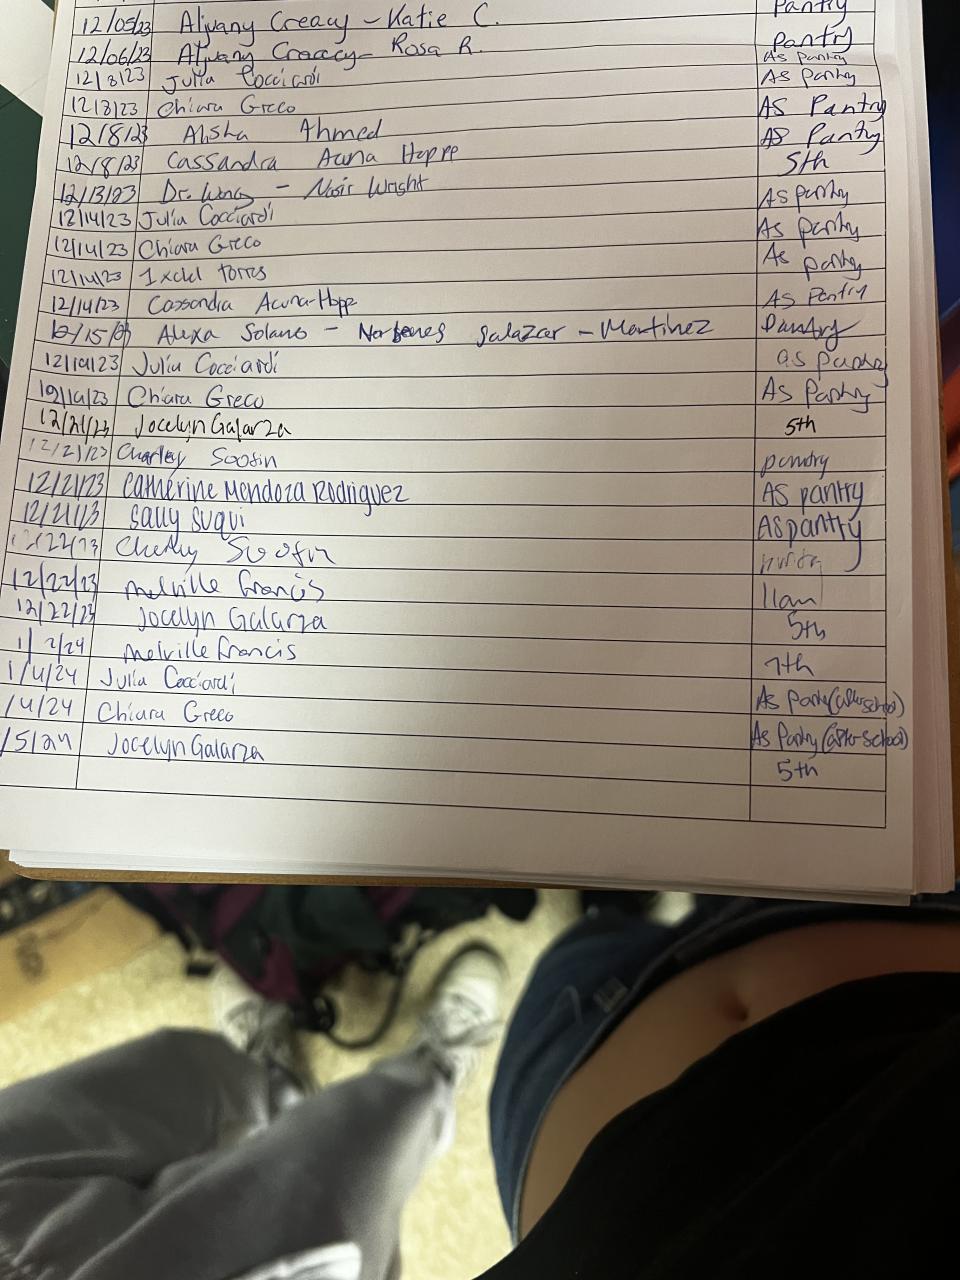 Pantry
12/05/23 Aljvany Creacy - Katie C. Pantry
12/06/23 Aljvany Creacy - Rosa R. As pantry
12/8/23 Julia Cocciardi As pantry
12/8/23 Chiara Greco AS Pantry
12/8/23 Alisha Ahmed AS Pantry
12/8/23 Cassandra Acuna Hopp 5th
12/13/23 Dr. Wong - Wright As pantry
12/14/23 Julia Cocciardi As pantry
12/14/23 Chiara Greco As pantry
12/14/23 Ixchel Torres As Pantry
12/14/23 Cassandra Acuna-Hopp Pantry
12/15/23 Alexa Solano - Salazar-Martinez as pantry
12/19/23 Julia Cocciardi As Pantry
12/19/23 Chiara Greco 5th
12/21/23 Jocelyn Galarza pantry
12/21/23 Charley Soofin AS pantry
12/21/23 Catherine Mendoza Rodriguez AS pantry
12/21/23 Sally Suqui
12/22/23 Soofin 11am
12/22/23 Melville Francis 5th
12/22/23 Jocelyn Galarza 7th
1/2/24 Melville Francis
1/4/24 Julia Cocciardi As Pantry (after school)
1/4/24 Chiara Greco As Pantry (after school)
/5/24 Jocelyn Galarza 5th